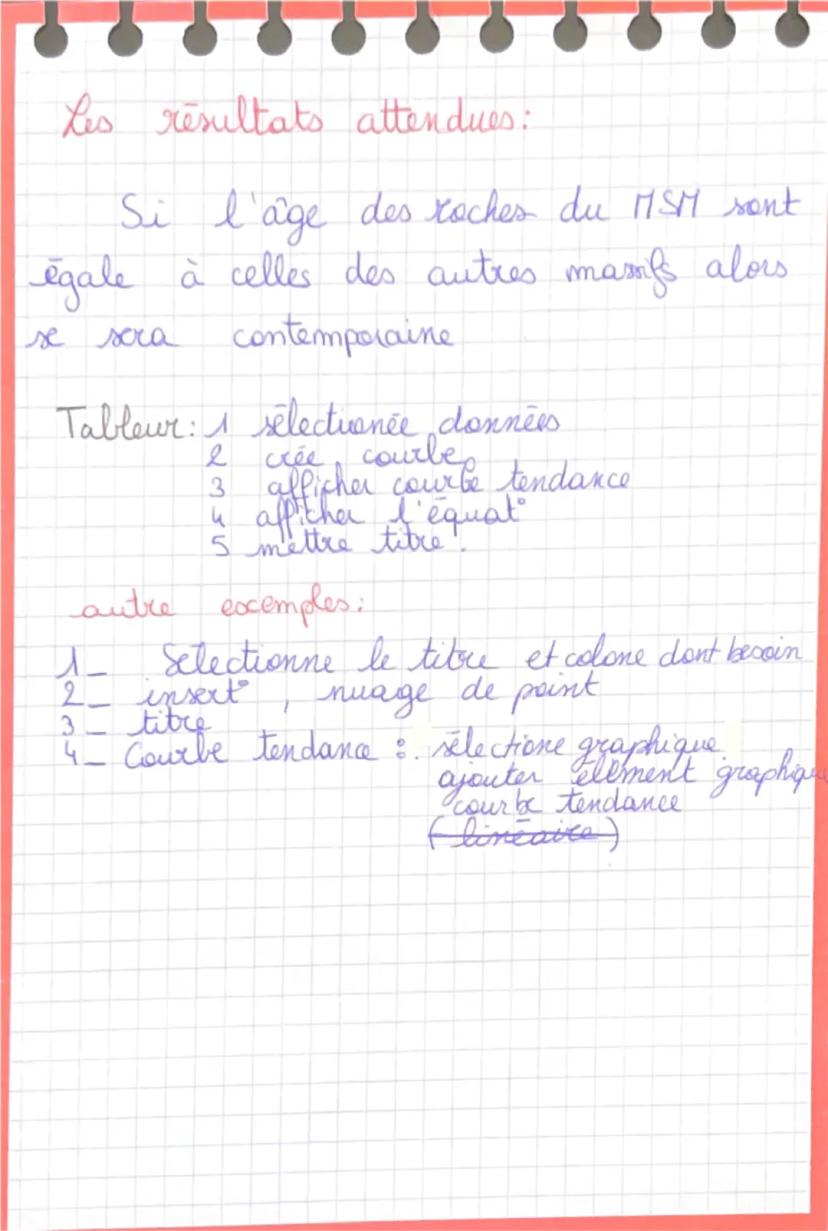 Les résultats attendues :
Si l'âge des roches du MSM sont
égale à celles des autres massifs alors
se sera contemporaine
Tableur : 1 sélectionée données
2 crée courbe
3 afficher courbe tendance
4 afficher l'équat°
5 mettre titre.
autre exemples :
1_ Selectionne le titre et colone dont besoin
2_ insert°, nuage de point
3_ titre
4_ Courbe tendance : sélectione graphique
ajouter élément graphique
courbe tendance
(linéaire)